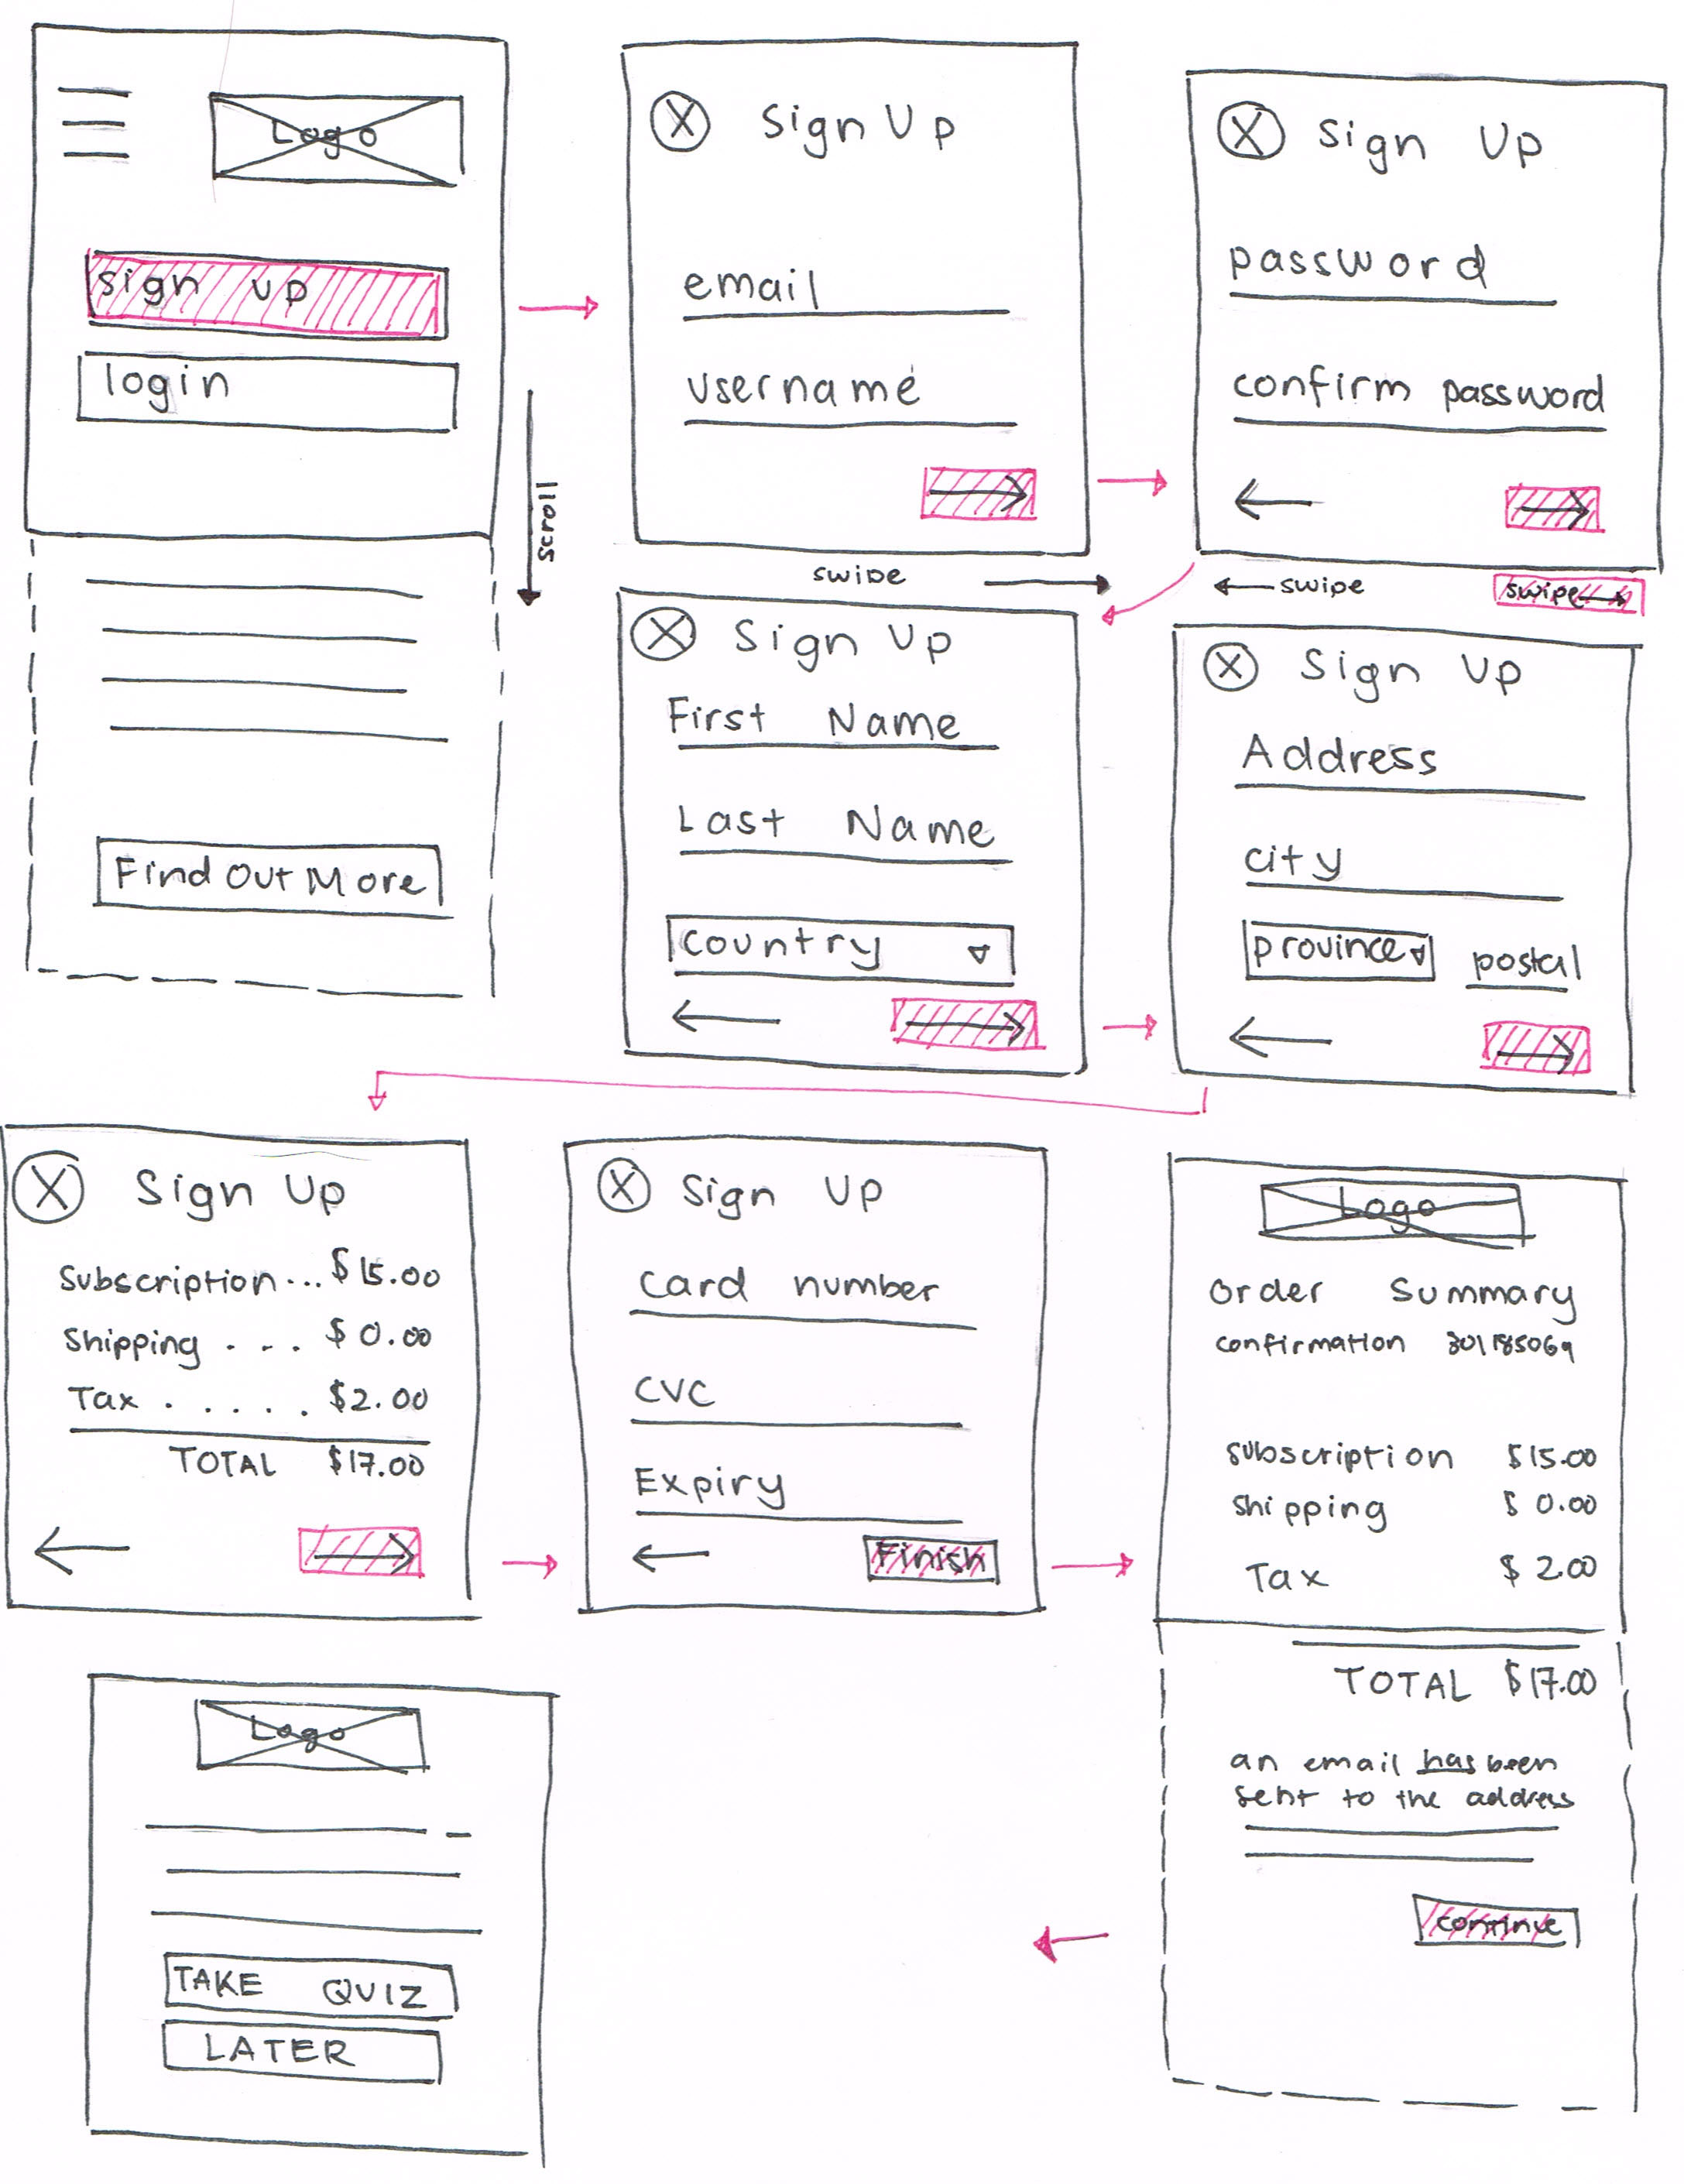 Logo
sign up
login
scroll
Find Out More
X Sign Up
email
username
swipe
X Sign Up
password
confirm password
swipe
swipe
X Sign Up
First Name
Last Name
country
X Sign Up
Address
city
province postal
X Sign Up
Subscription... $15.00
Shipping . . . $0.00
Tax . . . . . $2.00
TOTAL $17.00
X Sign Up
Card number
CVC
Expiry
Finish
Logo
Order Summary
confirmation
subscription $15.00
shipping $0.00
Tax $2.00
TOTAL $17.00
an email has been
sent to the address
continue
Logo
TAKE QUIZ
LATER